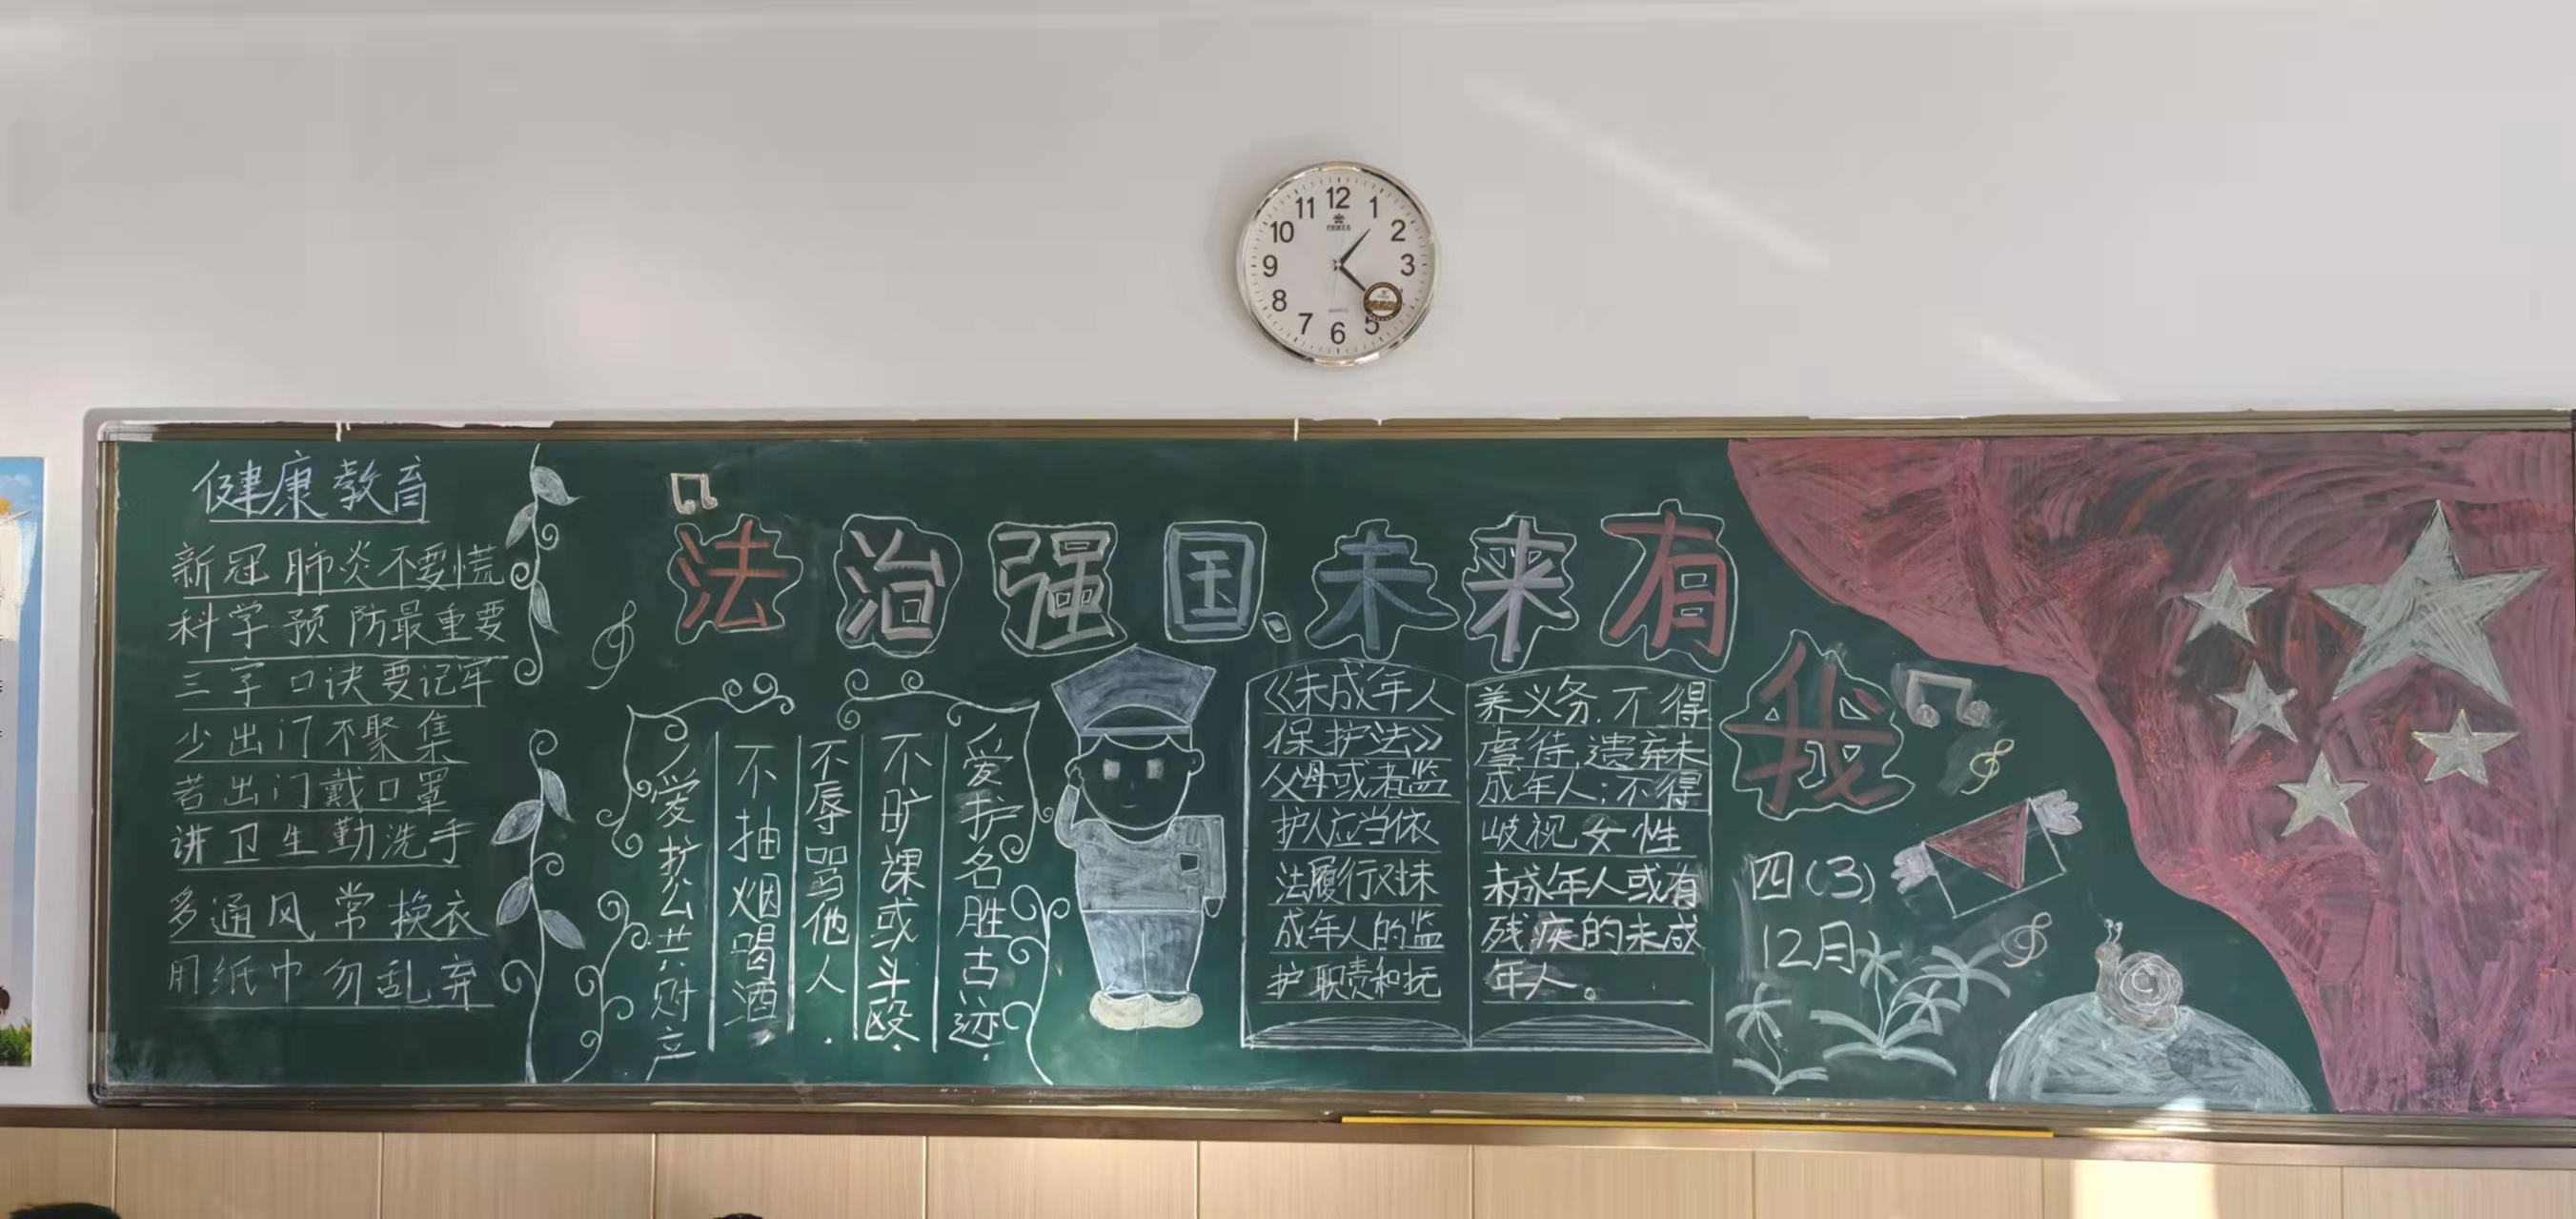 12
1
2
3
5
6
7
8
9
10
11
健康教育
新冠肺炎不要慌
科学预防最重要
三字口诀要记牢
少出门不聚集
若出门戴口罩
讲卫生勤洗手
多通风常换衣
用纸巾勿乱弃
法治强国、未来有我
爱护名胜古迹.
不旷课或斗殴.
不辱骂他人.
不抽烟喝酒.
爱护公共财产
《未成年人
保护法》
父母或者监
护人应当依
法履行对未
成年人的监
护职责和抚
养义务.不得
虐待,遗弃未
成年人;不得
歧视女性
未成年人或有
残疾的未成
年人。
四(3)
12月